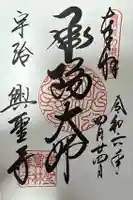 奉拝
令和六年
四月廿四日
承陽大師
宇治 興聖寺